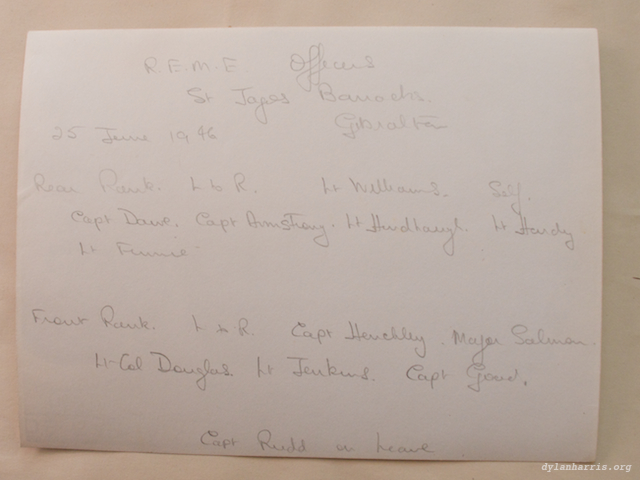 R.E.M.E Officers
St Jagos Barracks.
25 June 1946 Gibraltar
Rear Rank. L to R. Lt Williams. Self.
Capt Dave. Capt Armstrong. Lt Lt Hardy
Lt
Front Rank. L to R. Capt Henchley. Major Salmon.
Lt-Col Douglas. Lt Jenkins. Capt
Capt Rudd on Leave
dylanharris.org